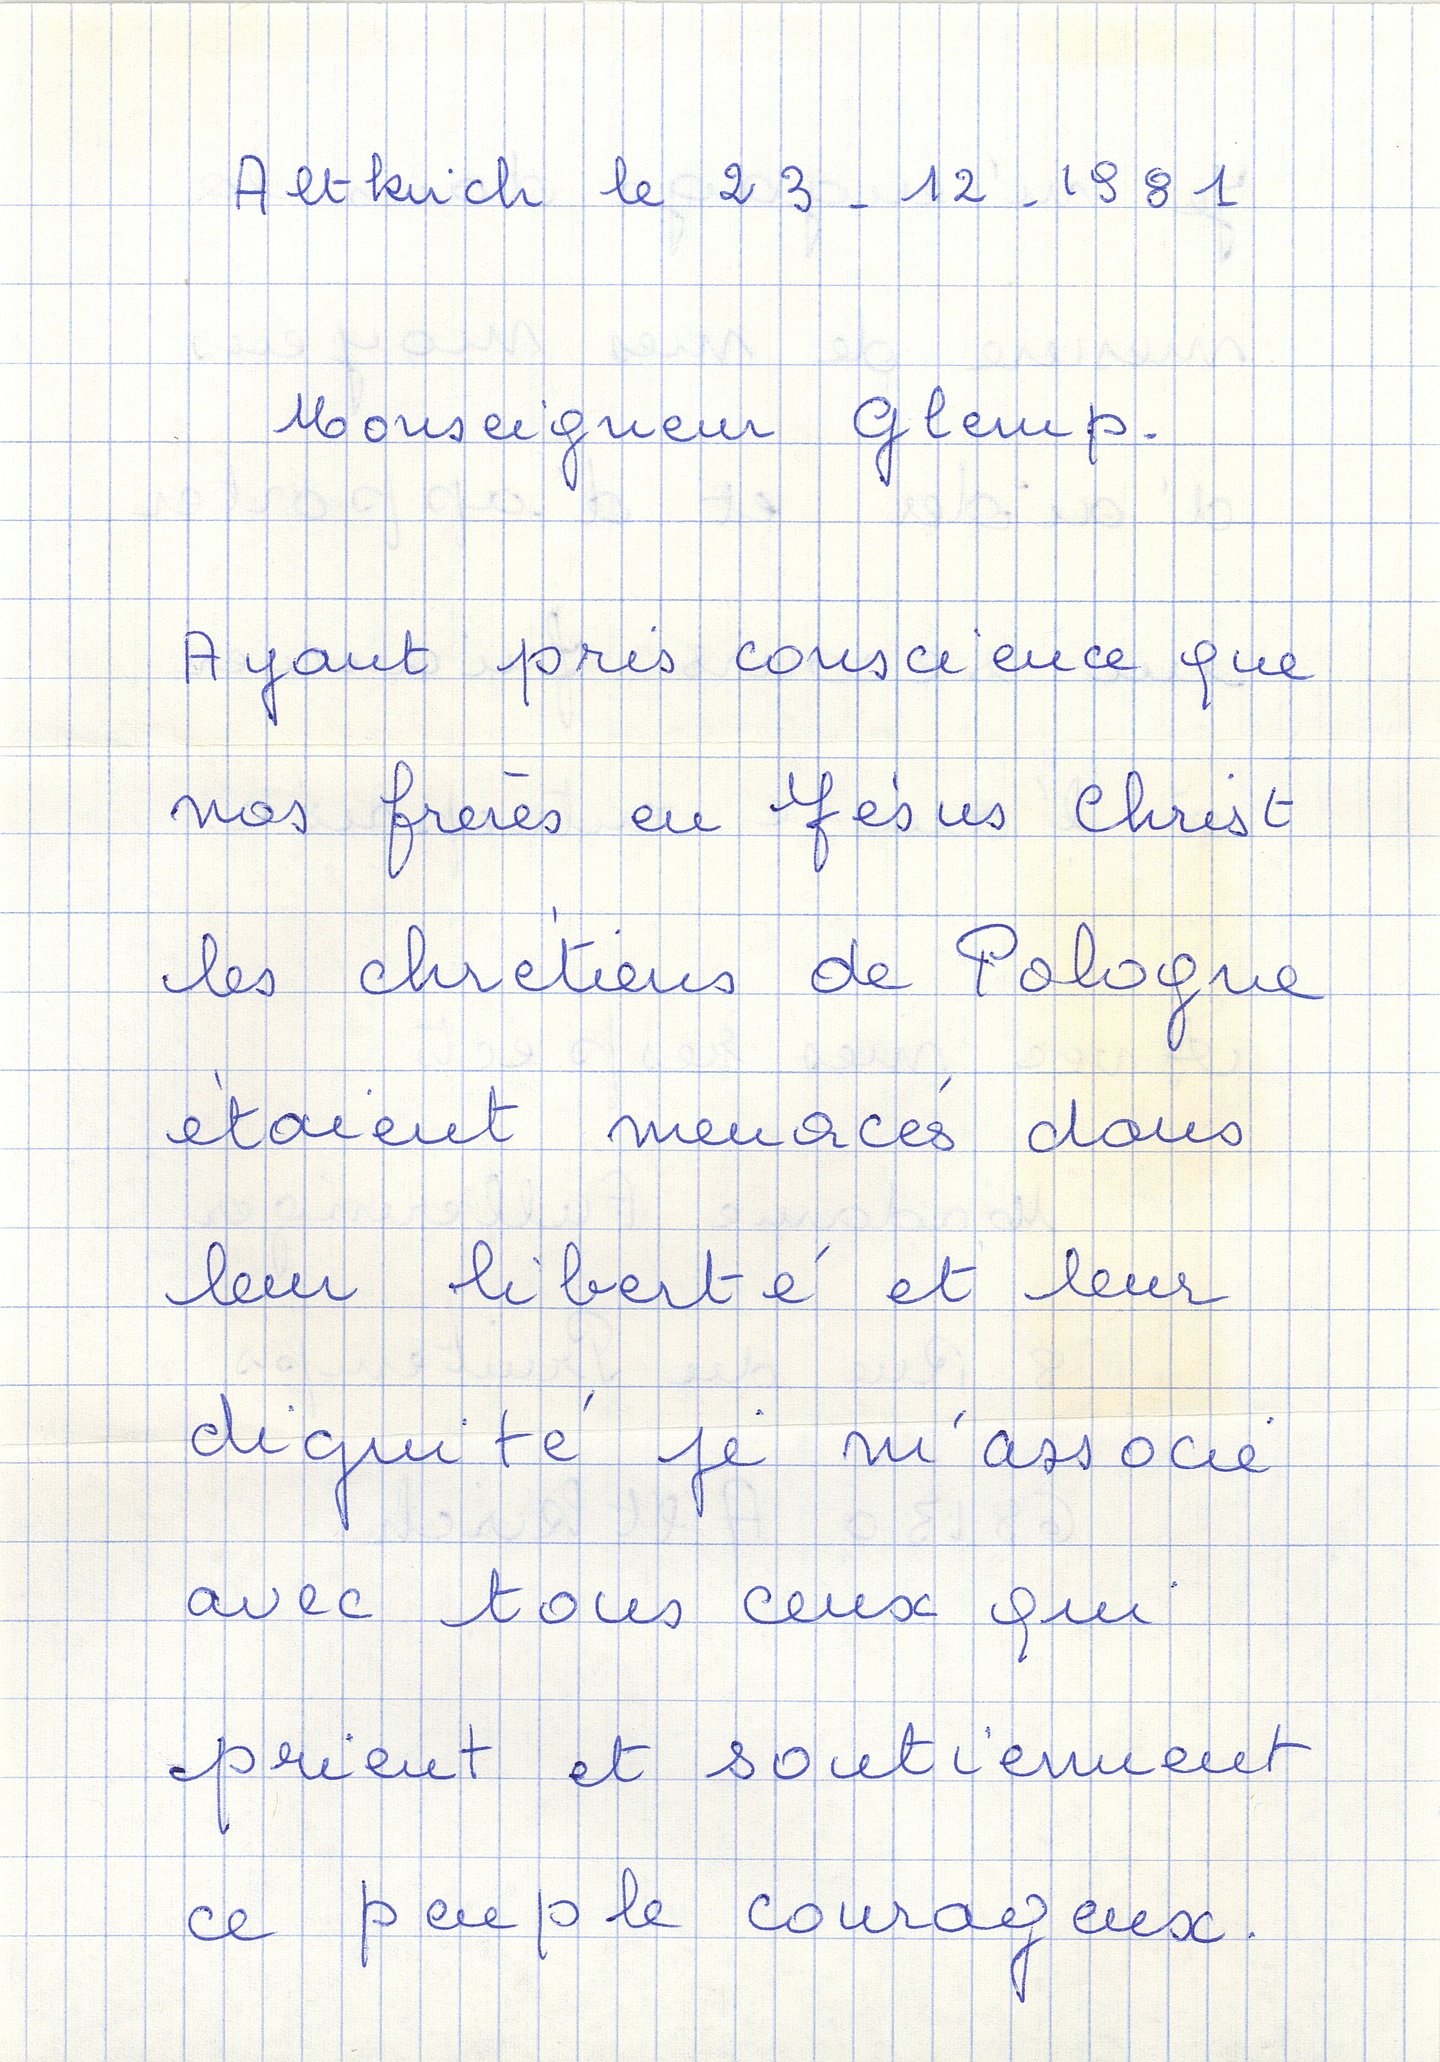 Altkirch le 23-12-1981
Monseigneur Glemp.
Ayant pris conscience que
nos frères en Jésus Christ
les chrétiens de Pologne
étaient menacés dans
leur liberté et leur
dignité je m'associe
avec tous ceux qui
prient et soutiennent
ce peuple courageux.